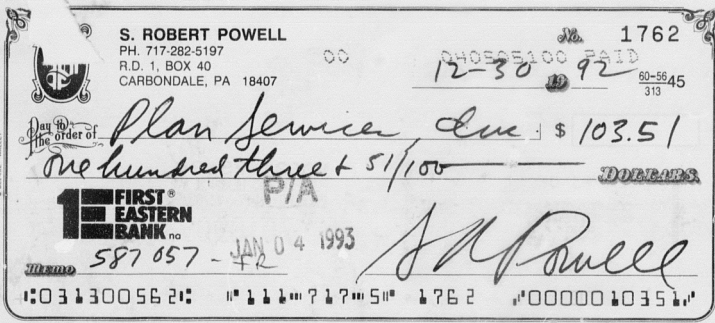 S. ROBERT POWELL
PH. 717-282-5197
R.D. 1, BOX 40
CARBONDALE, PA 18407
No. 1762
00 PAID
12-30 19 92
60-56/313 45
Pay to the order of Plan Services, Inc. $ 103.51
One hundred three & 51/100 DOLLARS
P/A
1E FIRST EASTERN BANK na
JAN 04 1993
Memo 587 057 - FR
S R Powell
⑆031300562⑆ ⑈111⑉717⑉5⑈ 1762 ⑈0000010351⑈